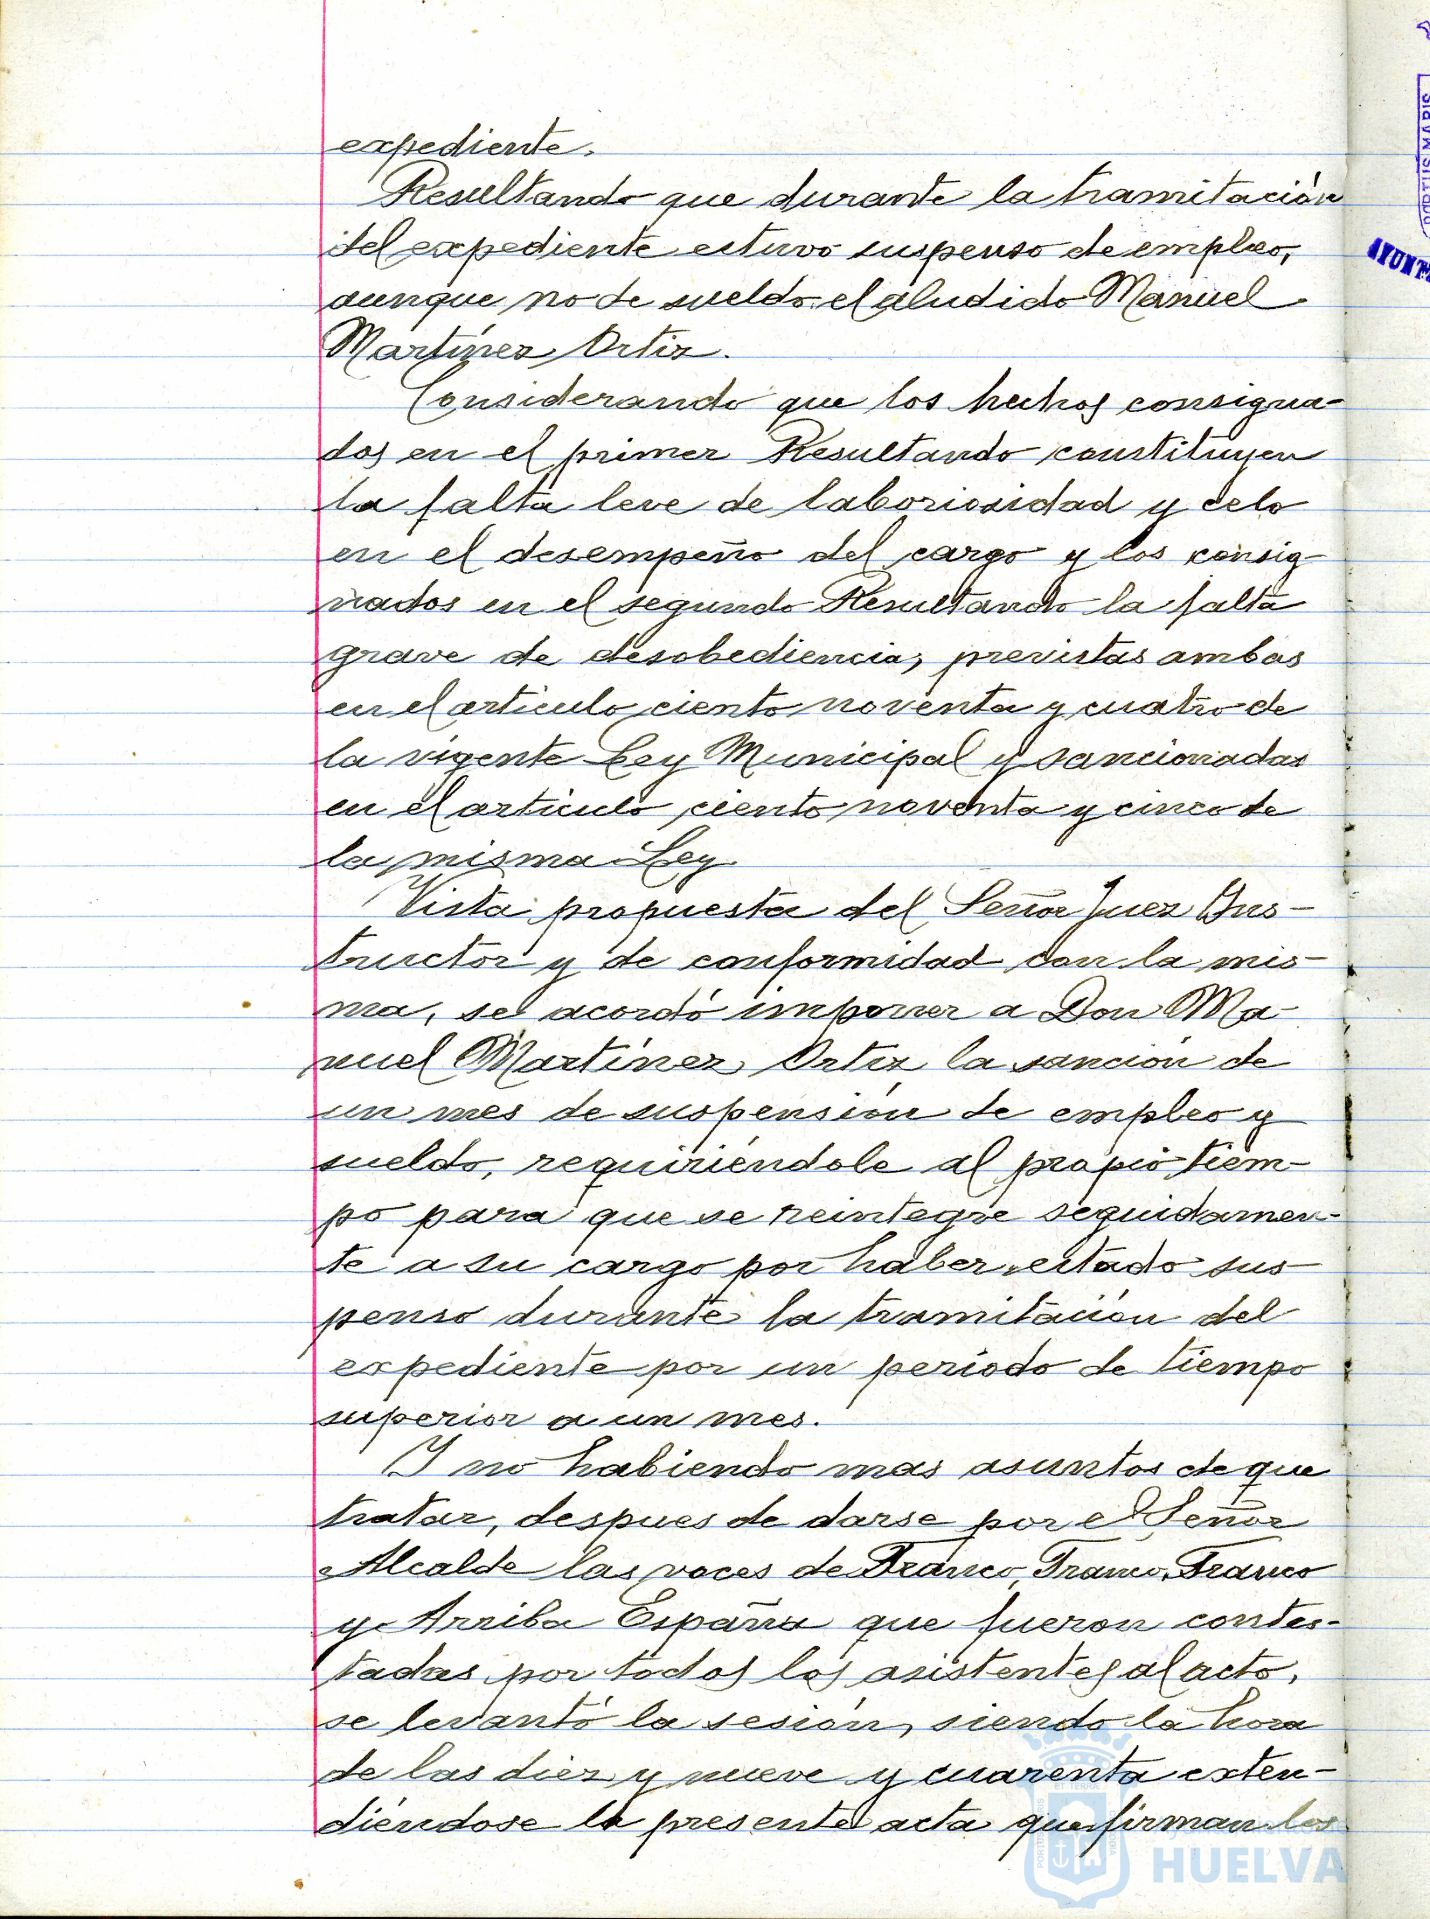 expediente.
Resultando que durante la tramitación
del expediente estuvo suspenso de empleo,
aunque no de sueldo el aludido Manuel
Martínez Ortiz.
Considerando que los hechos consigna-
dos en el primer Resultando constituyen
la falta leve de laboriosidad y celo
en el desempeño del cargo y los consig-
nados en el segundo Resultando la falta
grave de desobediencia, previstas ambas
en el articulo ciento noventa y cuatro de
la vigente Ley Municipal y sancionadas
en el articulo ciento noventa y cinco de
la misma Ley.
Vista propuesta del Señor Juez Ins-
tructor y de conformidad con la mis-
ma, se acordó imponer a Don Ma-
nuel Martínez Ortiz la sanción de
un mes de suspensión de empleo y
sueldo, requiriéndole al propio tiem-
po para que se reintegre seguidamen-
te a su cargo por haber estado sus-
penso durante la tramitación del
expediente por un periodo de tiempo
superior a un mes.
Y no habiendo mas asuntos de que
tratar, despues de darse por el Señor
Alcalde las voces de Franco, Franco, Franco
y Arriba España que fueron contes-
tadas por todos los asistentes al acto,
se levantó la sesión, siendo la hora
de las diez y nueve y cuarenta exten-
diéndose la presente acta que firman los
HUELVA
PORTUS MARIS
AYUNT